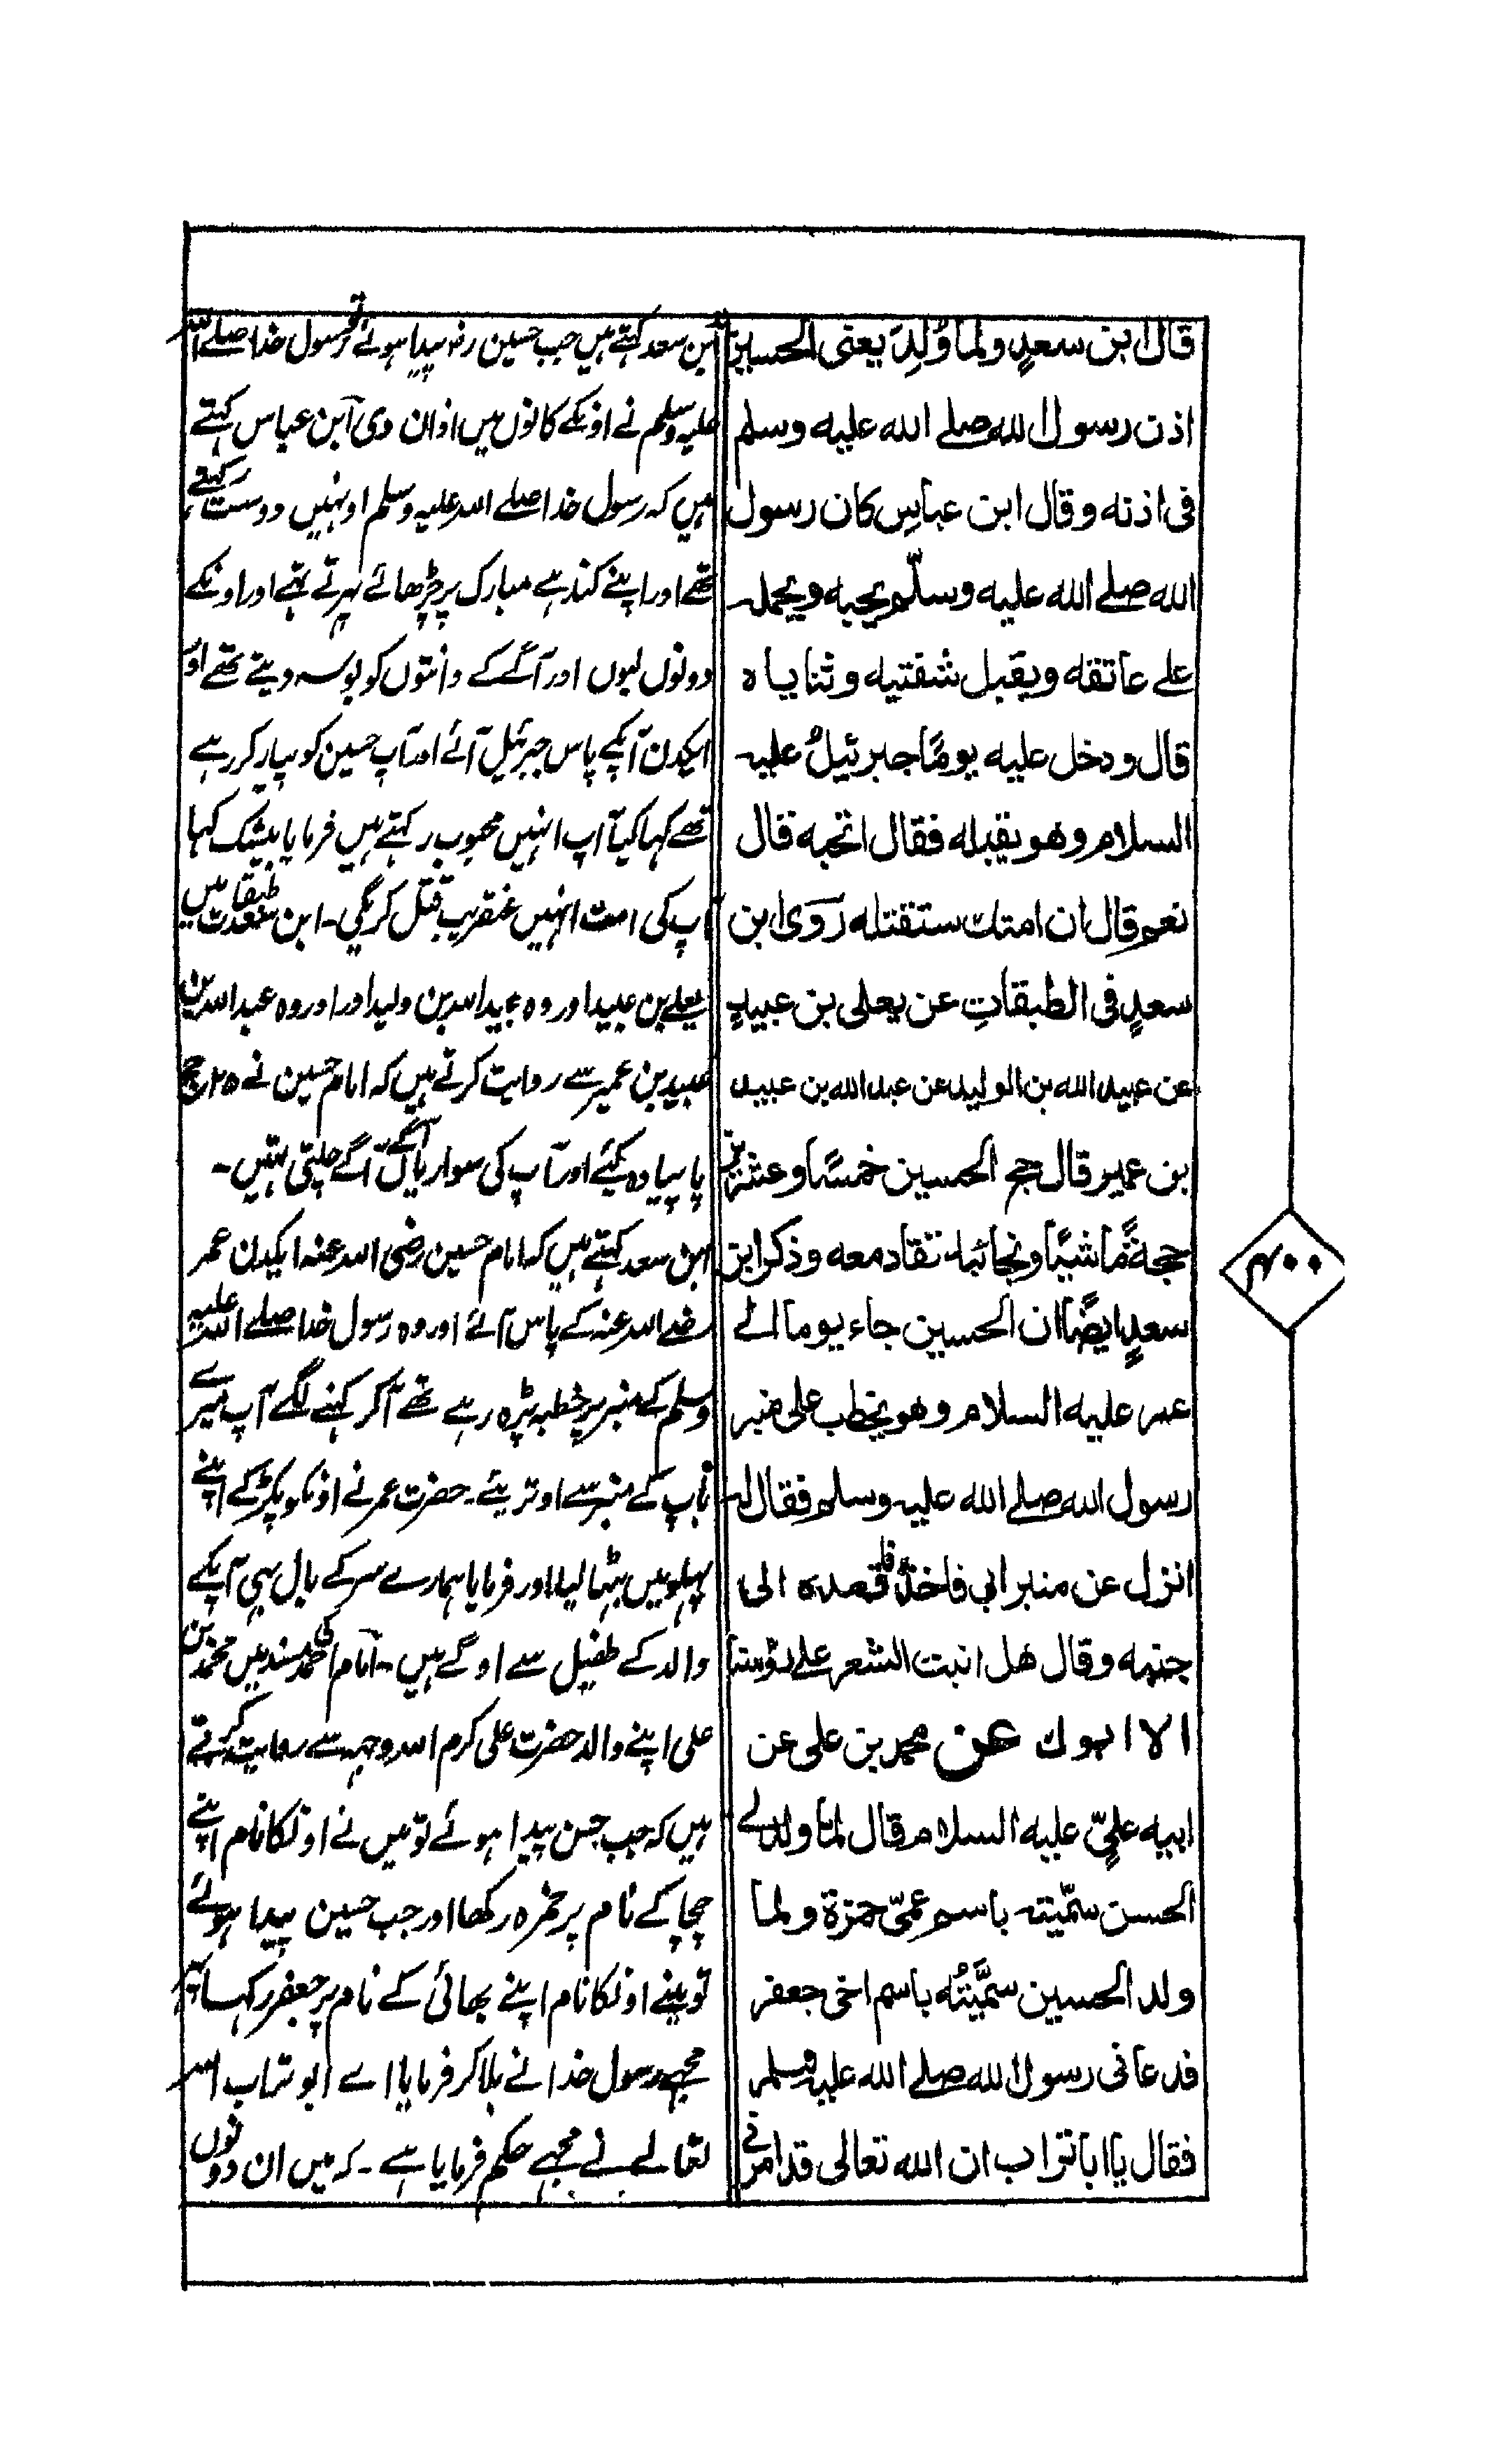 قال ابن سعدٍ ولما وُلِدَ یعنی الحسین
اذن رسول الله صلے الله علیه وسلم
فی اذنه وقال ابن عباسٍ کان رسول
الله صلے الله علیه وسلّم یحبه ویحمله
علے عاتقه ویقبل شفتیه وثنایاہ
قال ودخل علیه یومًا جبرئیلُ علیه
السلام وهو یقبله فقال اتحبه قال
نعم قال ان امتك ستقتله رَوٰی ابن
سعدٍ فی الطبقاتِ عن یعلی بن عبیدٍ
عن عبید الله بن الولید عن عبد الله بن عبید
بن عمیر قال حج الحسین خمسًا وعشرین
حجةً ماشیًا ونجائبه تقاد معه وذکر ابن
سعدٍ ایضًا ان الحسین جاء یوما الے
عمر علیه السلام وهو یخطب علی منبر
رسول الله صلے الله علیه وسلم فقال له
انزل عن منبر ابی فاخذہ فاقعده الی
جنبه وقال هل انبت الشعر علے رؤسنا
الا ابوك عن محمد بن علی عن
ابیه علیٍّ علیه السلام قال لمّا ولد لے
الحسن سمّیته باسم عمّی حمزة ولما
ولد الحسین سمَّیتُه باسم اخی جعفر
فدعانی رسول الله صلے الله علیه وسلم
فقال یا ابا تراب ان الله تعالی قد امرنے
ابن سعد کہتے ہیں جب حسین رضہ پیدا ہوئے تو رسول خدا صلے اللہ
علیہ وسلم نے اونکے کانوں میں اذان دی ابن عباس کہتے
ہیں کہ رسول خدا صلے اللہ علیہ وسلم اونہیں دوست رکہتے
تھے اور اپنے کندہے مبارک پر چڑھائے پہرتے تہے اور اونکے
دونوں لبوں اور آگے کے دانتوں کو بوسہ دیتے تھے اور
ایکدن آپکے پاس جبرئیل آئے اور آپ حسین کو پیار کر رہے
تھے کہا کیا آپ انہیں محبوب رکہتے ہیں فرمایا بیشک کہا
آپ کی امت انہیں عنقریب قتل کریگی ۔ ابن سعد طبقات میں
یعلے بن عبید اور وہ عبید اللہ بن ولید اور اور وہ عبد اللہ بن
عبید بن عمیر سے روایت کرتے ہیں کہ امام حسین نے ۲۵ حج
پا پیادہ کیئے اور آپ کی سواریاں آپکے آگے چلتی تہیں ۔
ابن سعد کہتے ہیں کہ امام حسین رضی اللہ عنہ ایکدن عمر
رضے اللہ عنہ کے پاس آئے اور وہ رسول خدا صلے اللہ علیہ
وسلم کے منبر پر خطبہ پڑہ رہے تھے آکر کہنے لگے آپ میرے
باپ کے منبر سے اوتریئے ۔ حضرت عمر نے اونکو پکڑ کے اپنے
پہلو میں بٹہا لیا اور فرمایا ہمارے سر کے بال بہی آپکے
والد کے طفیل سے اوگے ہیں ۔ امام احمد کی مسند میں محمد بن
علی اپنے والد حضرت علی کرم اللہ وجہہ سے روایت کرتے
ہیں کہ جب حسن پیدا ہوئے تو میں نے اونکا نام اپنے
چچا کے نام پر حمزہ رکھا اور جب حسین پیدا ہوئے
تو مینے اونکا نام اپنے بھائی کے نام پر جعفر رکہا پہر
مجہے رسول خدا نے بلا کر فرمایا اے ابو تراب اللہ
تعالے نے مجہے حکم فرمایا ہے ۔ کہ میں ان دونوں
۴۰۰